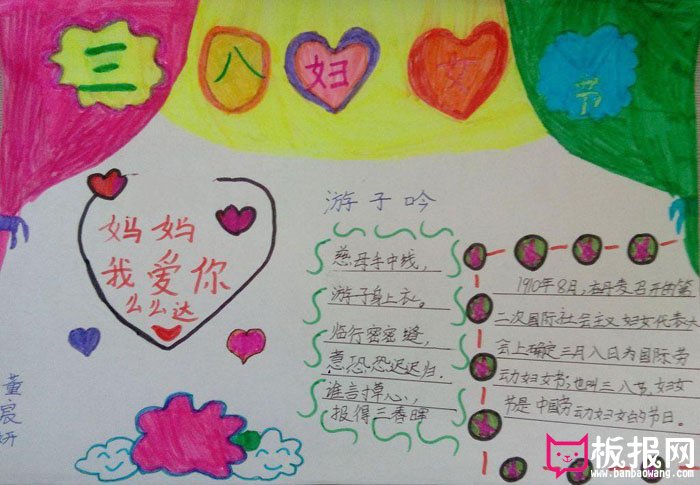 三八妇女节
妈妈
我爱你
么么达
游子吟
慈母手中线，
游子身上衣。
临行密密缝，
意恐恐迟迟归．
谁言寸草心，
报得三春晖
1910年8月，在丹麦召开的第
二次国际社会主义妇女代表大
会上确定三月八日为国际劳
动妇女节；也叫三八节，妇女
节是中国劳动妇女的节日．
董宸妍
板报网
www.banbaowang.com